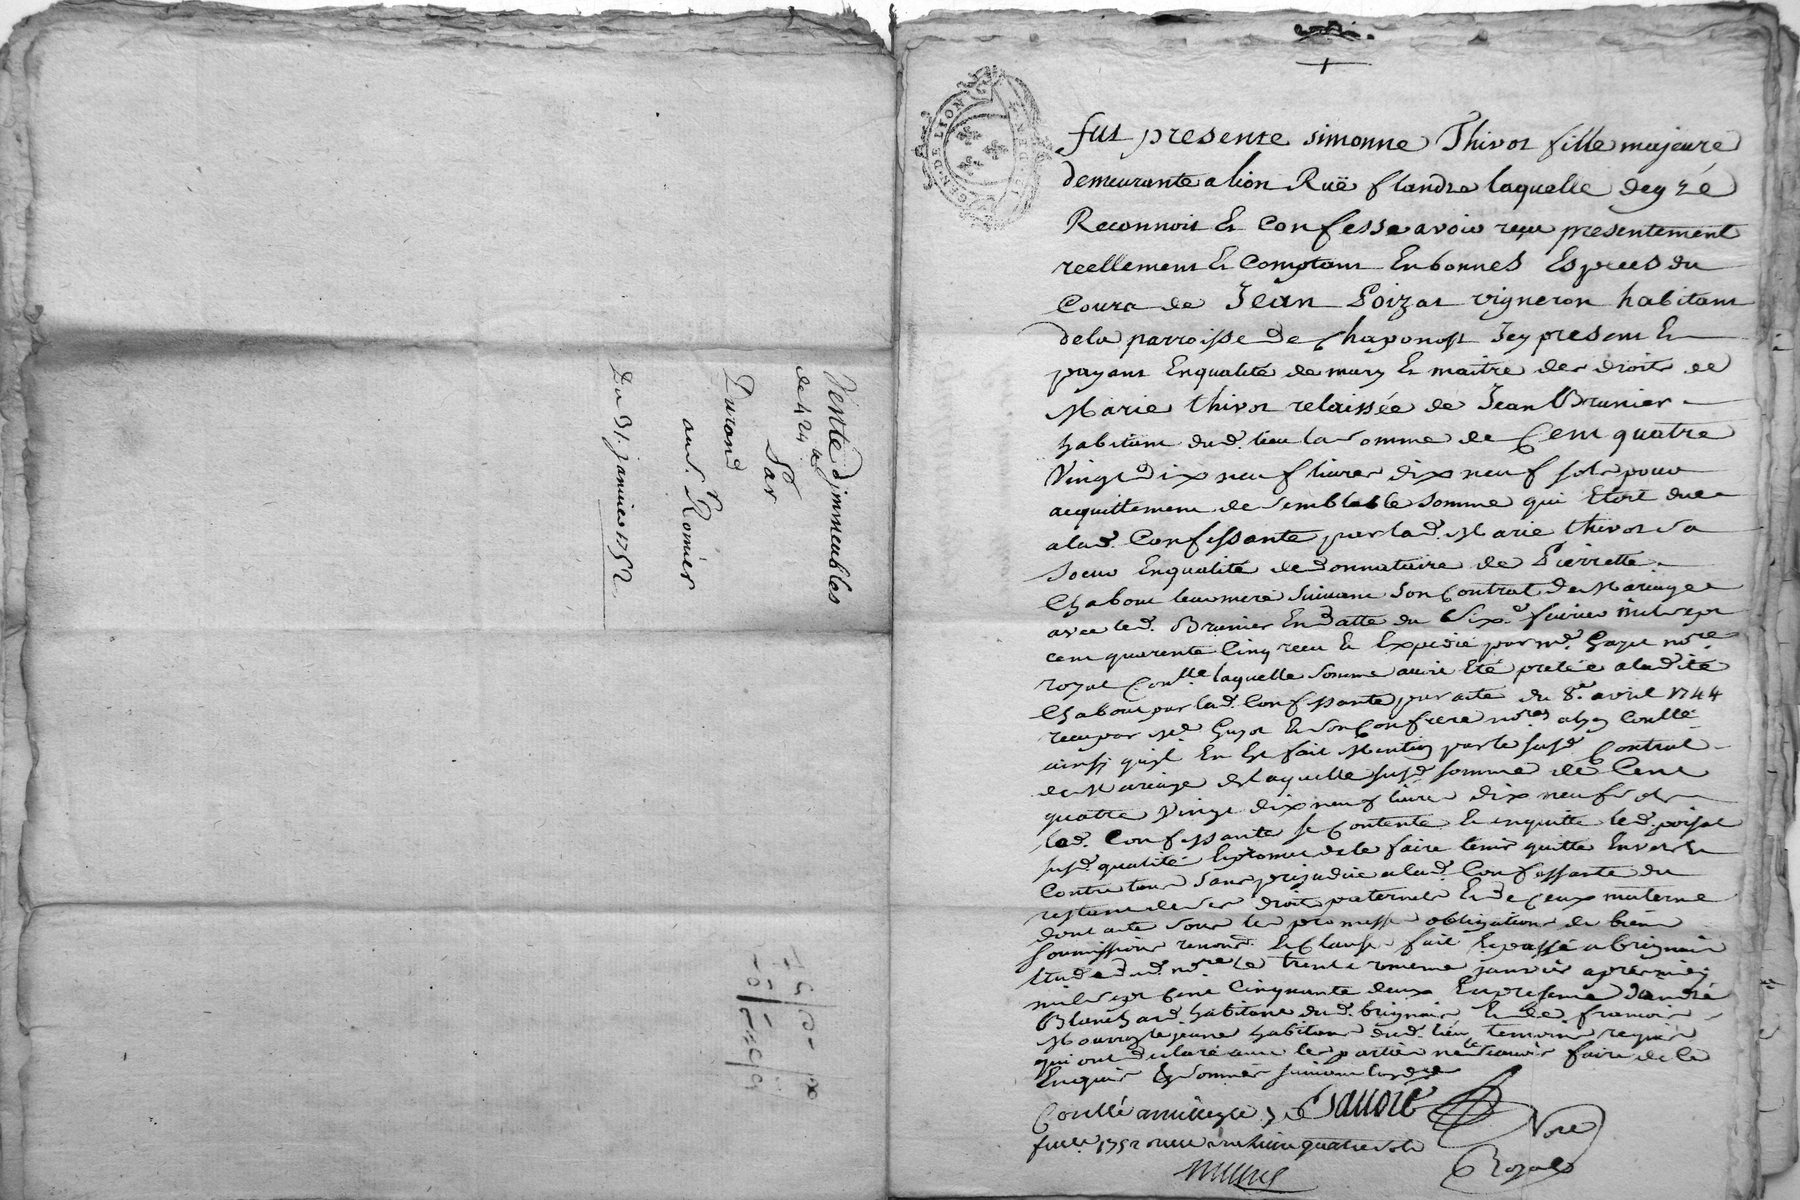 Vente d'immeubles
de 424 ᵗᵗ
Par
Durand
aud. Romier
Du 31. janvier 1752
GEN. DE LION
fut presente simonne Thivot fille majeure
demeurante a lion Ruë flandre laquelle de gré
Reconnoit Et Confesse avoir reçu presentement
reellement Et Comptant En bonnes Especes du
Cours de Jean Poizat vigneron habitant
de la parroisse de Chaponost Icy present Et
payant En qualité de mary Et maitre des droits de
Marie thivot relaissée de Jean Brunier
habitant dud. lieu la somme de Cent quatre
Vingt dix neuf livres dix neuf sols pour
acquittement de semblable somme qui Etoit due
a lad. Confessante par lad. Marie thivot sa
soeur En qualité de donnataire de Pierrette
Chabout leur mere suivant son Contrat de Mariage
avec led. Brunier En datte du six.ᵉ fevrier mil sept
cent quarente Cinq reçu Et Expedié par mᵉ. Guyot noʳᵉ
royal laquelle somme avoit Eté pretée a ladite
Chabout par lad. Confessante par acte du 8.ᵉ avril 1744
reçu par Mᵉ Guyot Et son Confrere noʳᵉˢ
ainsy qu'il En Est fait Mention par le susd. Contrat
de Mariage de laquelle susd. somme de Cent
quatre Vingt dix neuf livres dix neuf sols
lad. Confessante se Contente Et en quitte led. poizat
susd. qualité Et promet de le faire tenir quitte Envers Et
Contre tous sans prejudice a lad. Confessante du
restant de ses droits paternels Et de Ceux maternels
dont acte sous les promesses obligations de biens
soumissions renonc. Et Clauses fait Et passé a brignais
Etude dud. noʳᵉ le trente unieme janvier apres midy
mil sept Cent Cinquante deux En presence d'andré
Blanchard habitant dud. brignais Et de francois
le jeune habitant dud. lieu temoins requis
qui ont declaré avec les parties ne le scavoir faire de ce
Enquis Et sommés suivant lordᶜᵉ
Sauoré
Noʳᵉ
Royal
1752 reçu quatre sols